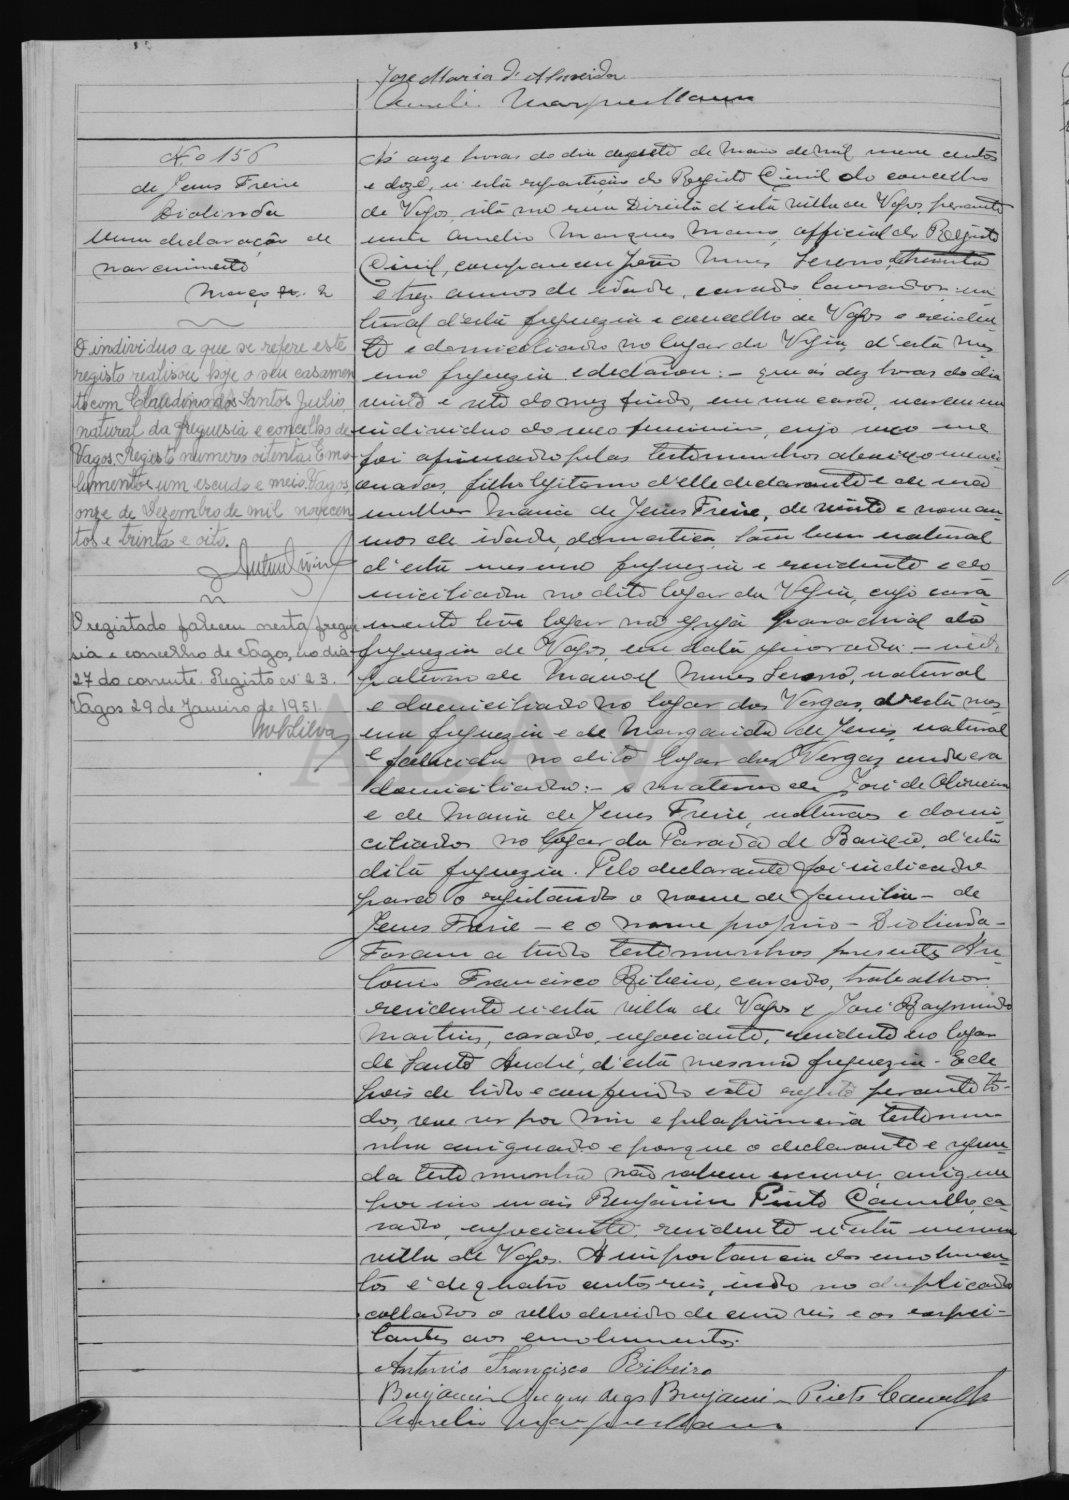 José Maria d'Almeida
Amelio Marques Mano
N.o 156
de Jesus Freire
Diolinda
Uma declaração de
nascimento
Março 2
O individuo a que se refere este
registo realisou hoje o seu casamen
to com Claudino dos Santos Julio,
natural da freguesia e concelho de
Vagos. Registo numero oitenta. Emo-
lumentos um escudo e meio. Vagos,
onze de Dezembro de mil novecen
tos e trinta e oito.
O registado faleceu nesta fregue
sia e concelho de Vagos, no dia
27 do corrente. Registo nº 23.
Vagos 29 de Janeiro de 1951.
M Silva
Ás onze horas do dia dezasete de Maio de mil nove centos
e doze, n'esta repartição do Registo Civil do concelho
de Vagos, sita na rua Direita d'esta villa de Vagos, perante
mim Amelio Marques Mano, official do Registo
Civil, compareceu João Nunes Sereno, de trinta
e trez annos de edade, casado, lavrador, na
tural d'esta freguezia e concelho de Vagos e residen-
te e domiciliado no lugar da Vigia, d'esta mes
ma freguezia e declarou: - que ás dez horas do dia
vinte e sete do mez findo, em sua casa, nasceu um
individuo do sexo feminino, cujo sexo me
foi afirmado pelas testemunhas abaixo menci
onadas, filho legitimo d'elle declarante e de sua
mulher Maria de Jesus Freire, de vinte e nove an-
nos de idade, domestica, tambem natural
d'esta mesma freguezia e residente e do
miciliada no dito logar da Vigia, cujo casa
mento teve logar na egreja parochial da
freguezia de Vagos, em data ignorada. - neto
paterno de Manoel Nunes Sereno, natural
e domiciliado no logar das Vergas, d'esta mes
ma freguezia e de Margarida de Jesus, natural
e falecida no dito logar das Vergas, onde era
domiciliada: - e materno de José de Oliveira
e de Maria de Jesus Freire, naturaes e domi-
ciliados no logar da Parada de Baixo, d'esta
dita freguezia. Pelo declarante foi indicado
para o registando o nome de familia - de
Jesus Freire - e o nome proprio - Diolinda -
Foram a tudo testemunhas presentes An-
tonio Francisco Ribeiro, casado, trabalhor
residente n'esta villa de Vagos e José Raymundo
Martins, casado, negociante, residente no logar
de Santo André, d'esta mesma freguezia. E de
pois de lido e conferido este registo perante to-
dos, vae ser por mim e pela primeira testemu-
nha assignado e porque o declarante e segun-
da testemunha não sabem escrever, assigna
por isso mais Benjamim Pinto Camello, ca-
sado, negociante, residente n'esta mesma
villa de Vagos. A importancia dos emolumen-
tos é de quatro centos reis, indo no duplicado
collados o sello devido de cem reis e os respei-
tantes aos emolumentos.
Antonio Francisco Ribeiro
Benjamim Pinto Camello
Amelio Marques Mano
ADAVR